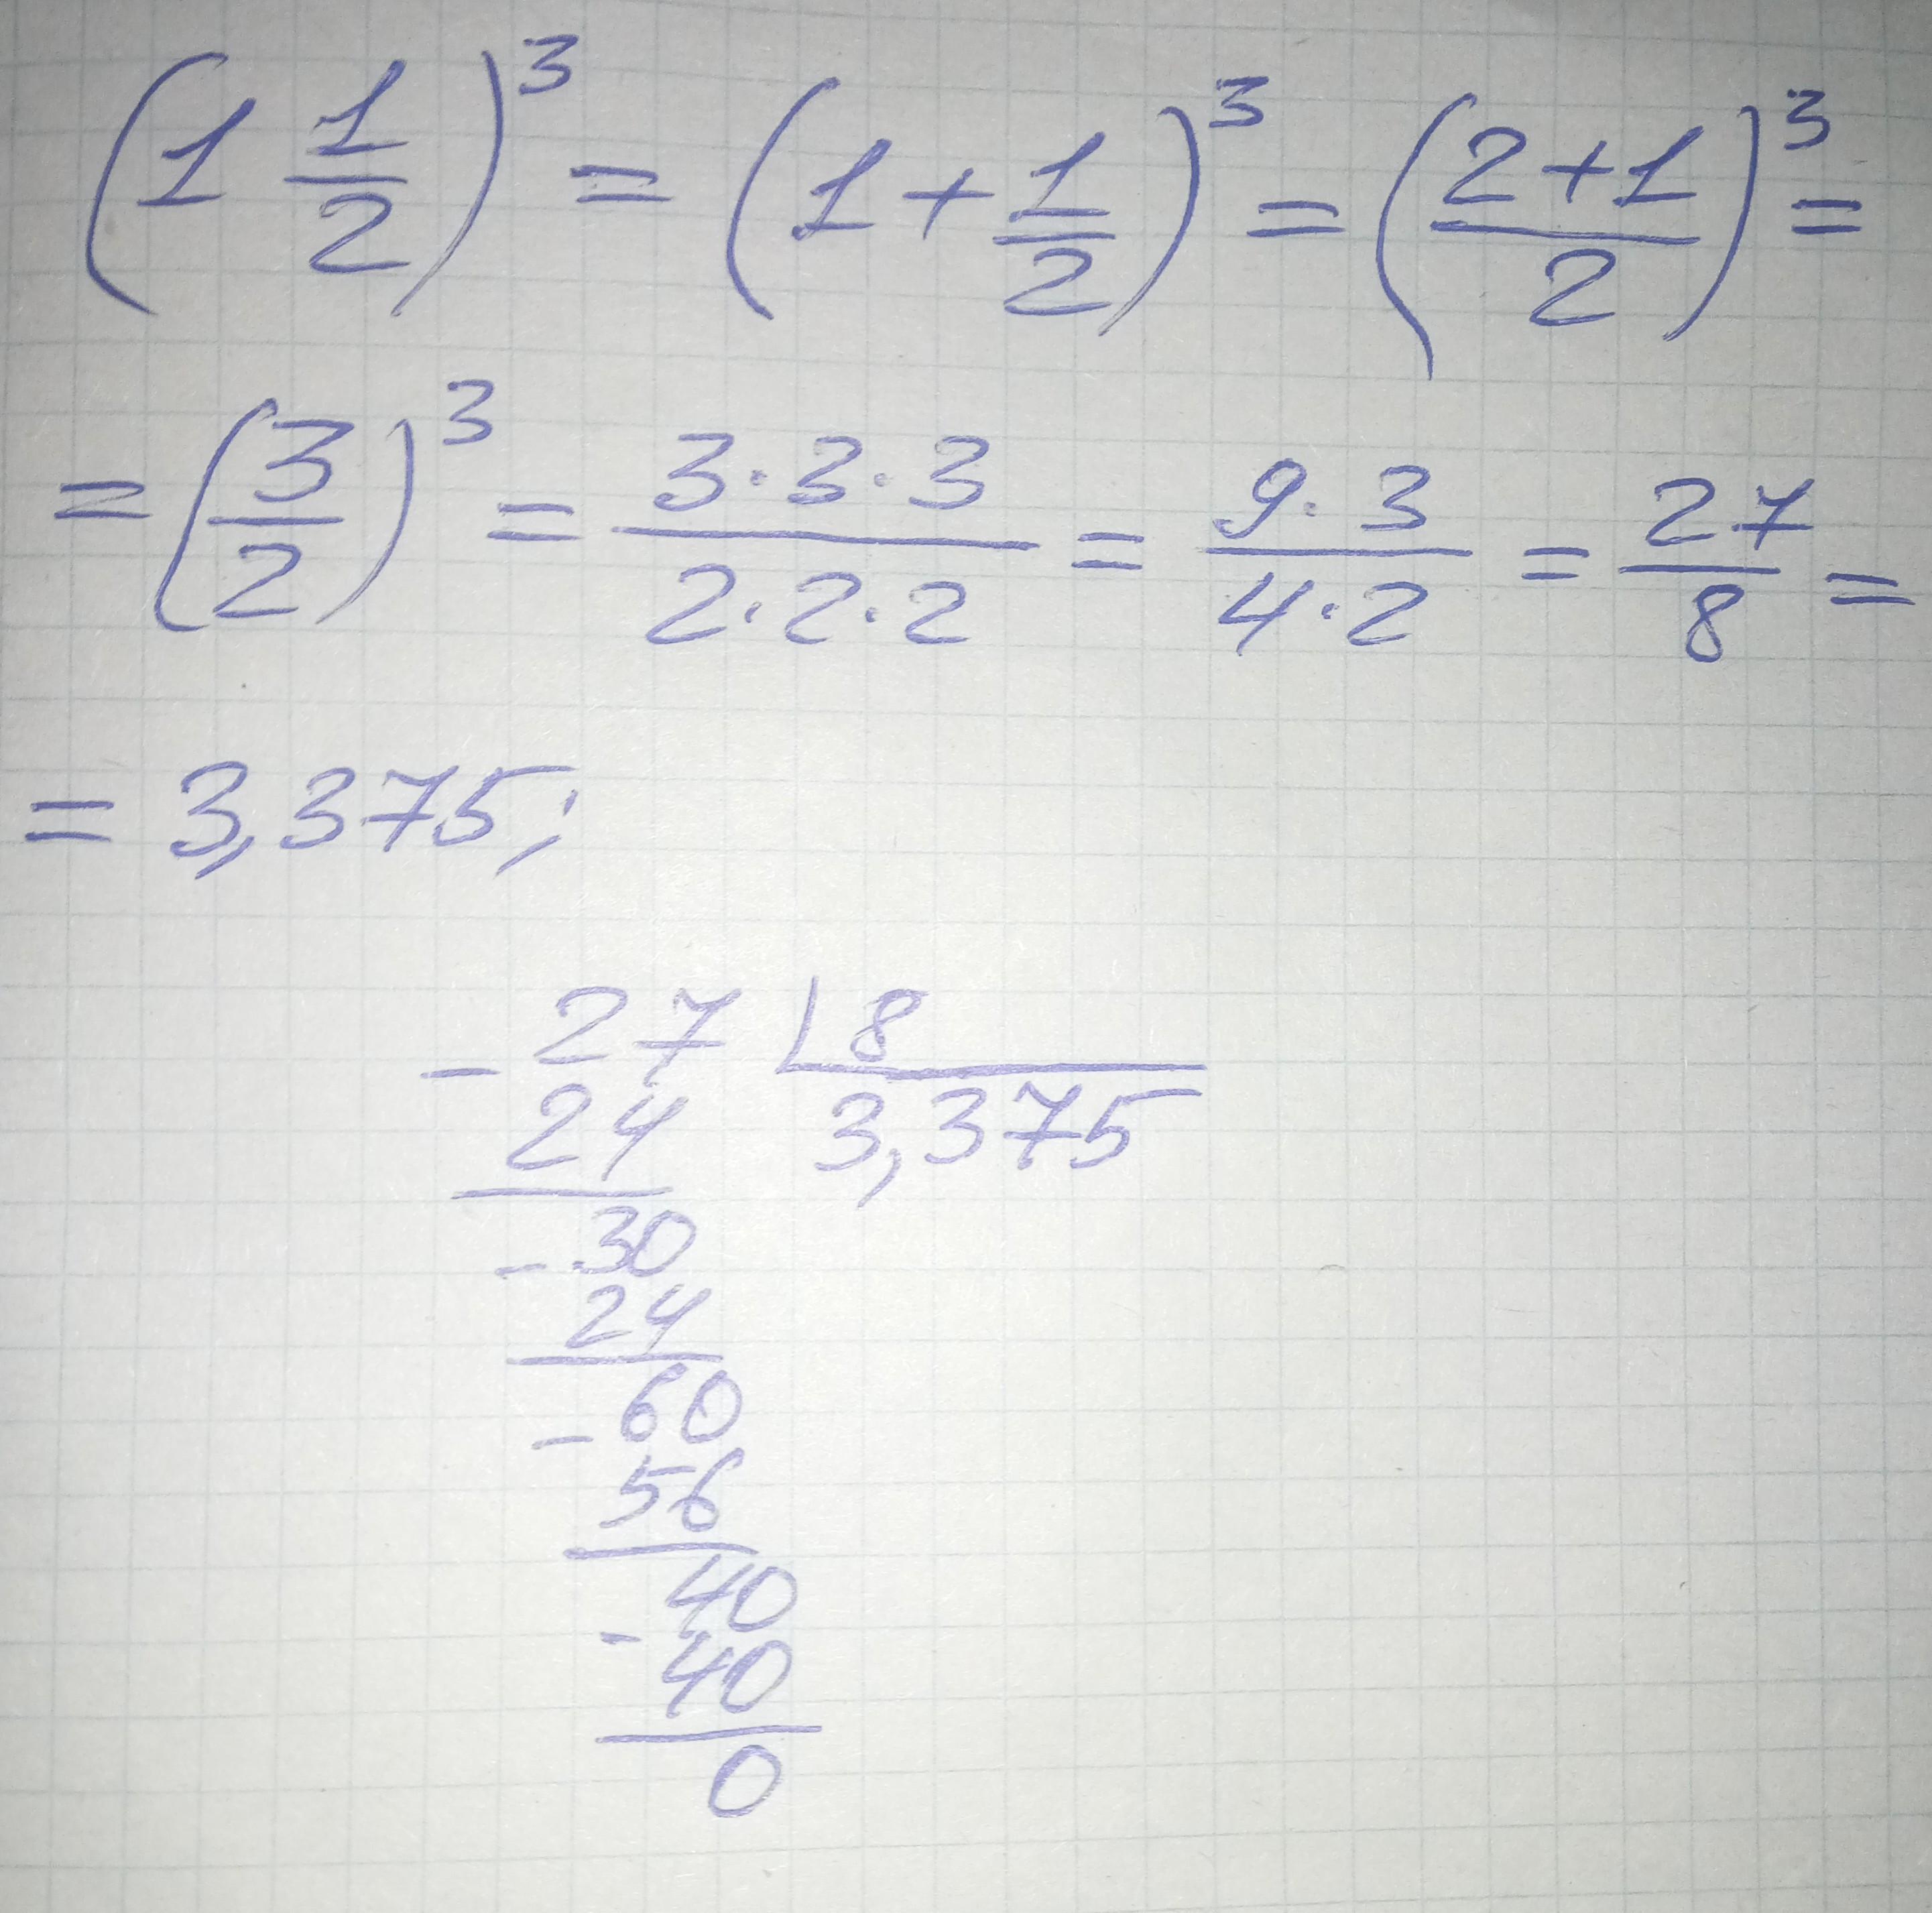 (1 1/2)³ = (1 + 1/2)³ = ((2+1)/2)³ =
= (3/2)³ = (3·3·3)/(2·2·2) = (9·3)/(4·2) = 27/8 =
= 3,375;
- 27 | 8
24 3,375
- 30
24
- 60
56
- 40
40
0